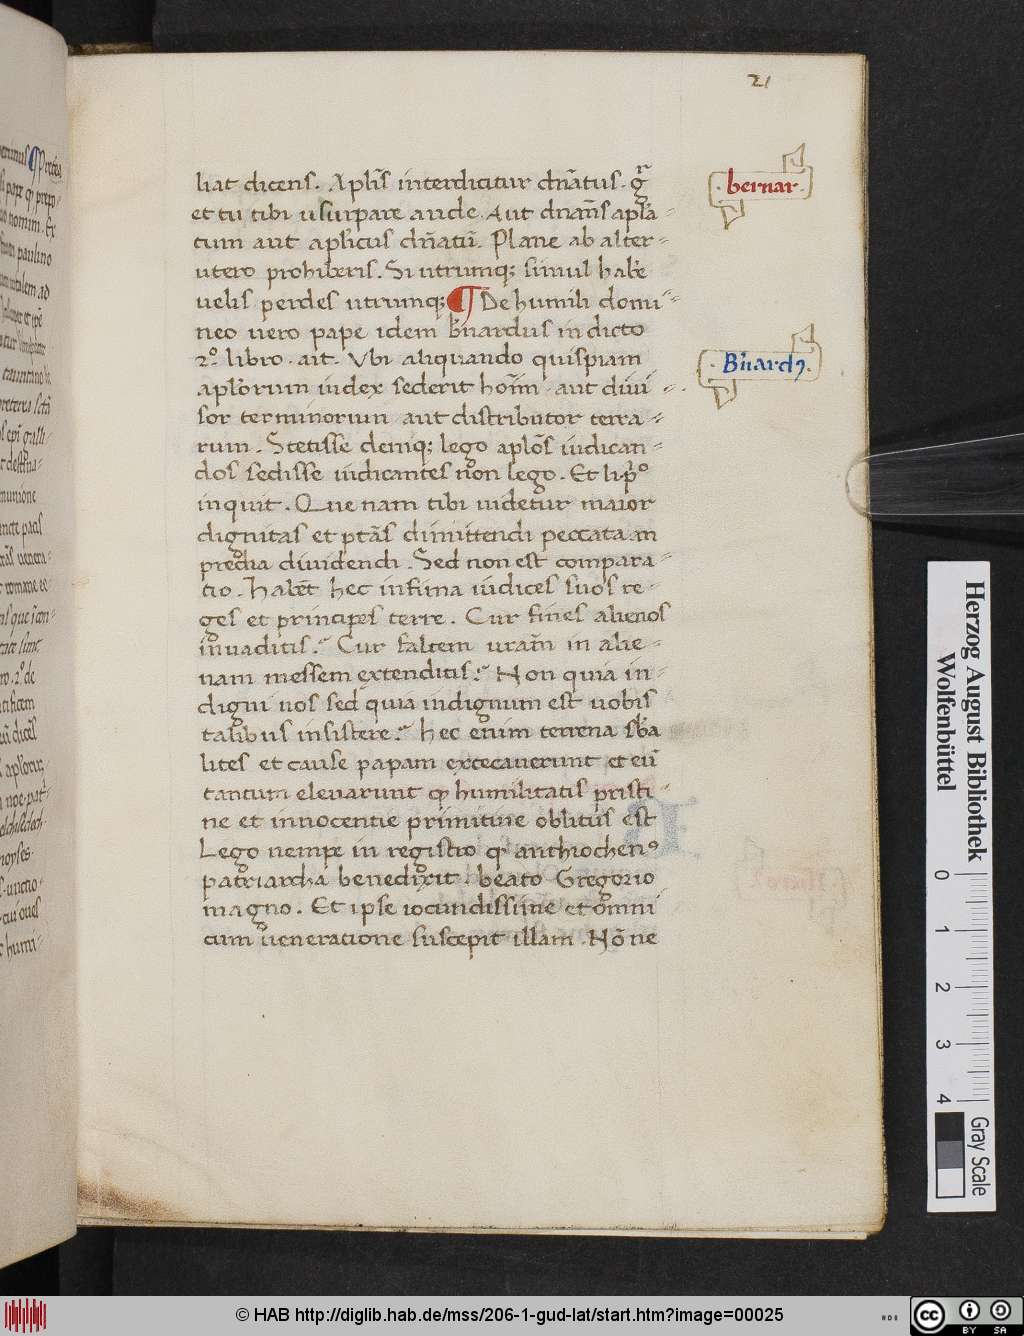 21
liat dicens. Apl'is interdicitur dn̄atus. gͬ
et tu tibi usurpare aude. Aut dn̄an̄s apl'a-
tum aut apl'icus dn̄atū. Plane ab alter-
utero prohiberis. Si utrumq; simul hab'e
uelis perdes utrumq; ¶ De humili domi-
neo uero pape idem b'nardus in dicto
2º. libro. ait. Vbi aliquando quispiam
apl'orum iudex sederit hoīm. aut diui-
sor terminorum aut distributor terra-
rum. Stetisse demq; lego apl'os iudican-
dos sedisse iudicantes non lego. Et li. pº
inquit. Que nam tibi uidetur maior
dignitas et ptās dimittendi peccata an
predia diuidendi. Sed non est compara-
tio. Habēt hec infima iudices suos re-
ges et principes terre. Cur fines alienos
inuaditis? Cur faltem uram̄ in alie-
nam messem extenditis? Non quia in-
digni uos sed quia indignum est uobis
talibus insistere? hec enim terrena sb'a
lites et cause papam excecauerunt et eū
tantum eleuarunt qꝫ humilitatis pristi-
ne et innocentie primitiue oblitus est
Lego nempe in registro qꝫ anthiochenꝰ
patriarcha benedixit. beato Gregorio
magno. Et ipse iocundissime et omni
cum ueneratione suscepit illam. Nōne
.bernar.
.B'nardꝰ.
Herzog August Bibliothek
Wolfenbüttel
0 1 2 3 4
Gray Scale
© HAB http://diglib.hab.de/mss/206-1-gud-lat/start.htm?image=00025
cc BY SA